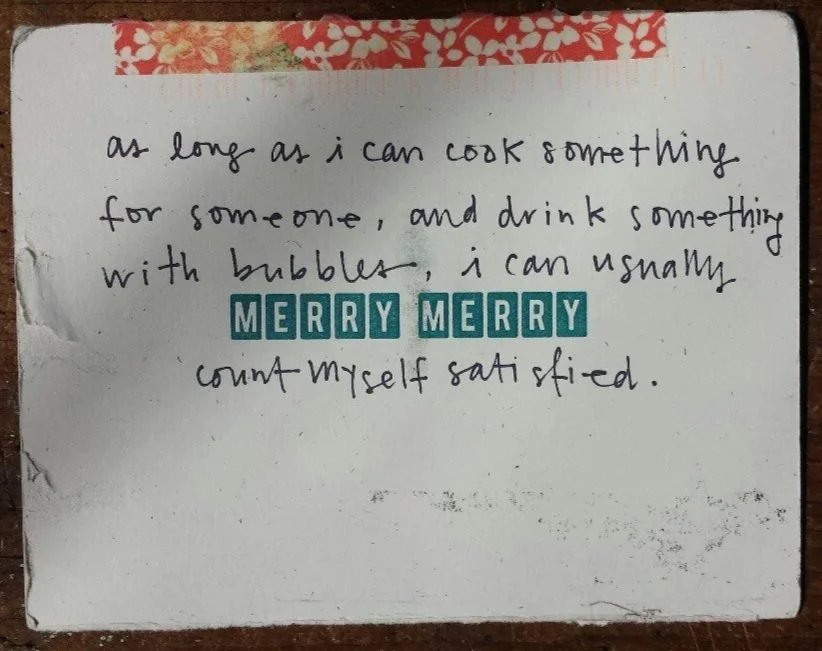 as long as i can cook something
for someone, and drink something
with bubbles, i can usually
MERRY MERRY
count myself satisfied.